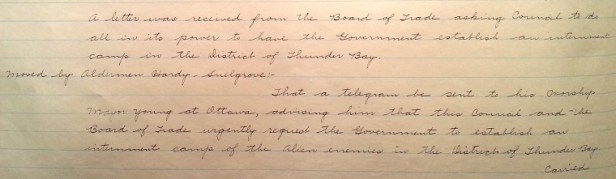 A letter was received from the Board of Trade asking Council to do
all in its power to have the Government establish an internment
camp in the District of Thunder Bay.
Moved by Aldermen Hardy - Snelgrove:-
That a telegram be sent to his Worship
Mayor Young at Ottawa, advising him that this Council and the
Board of Trade urgently request the Government to establish an
internment camp of the Alien enemies in the District of Thunder Bay
Carried